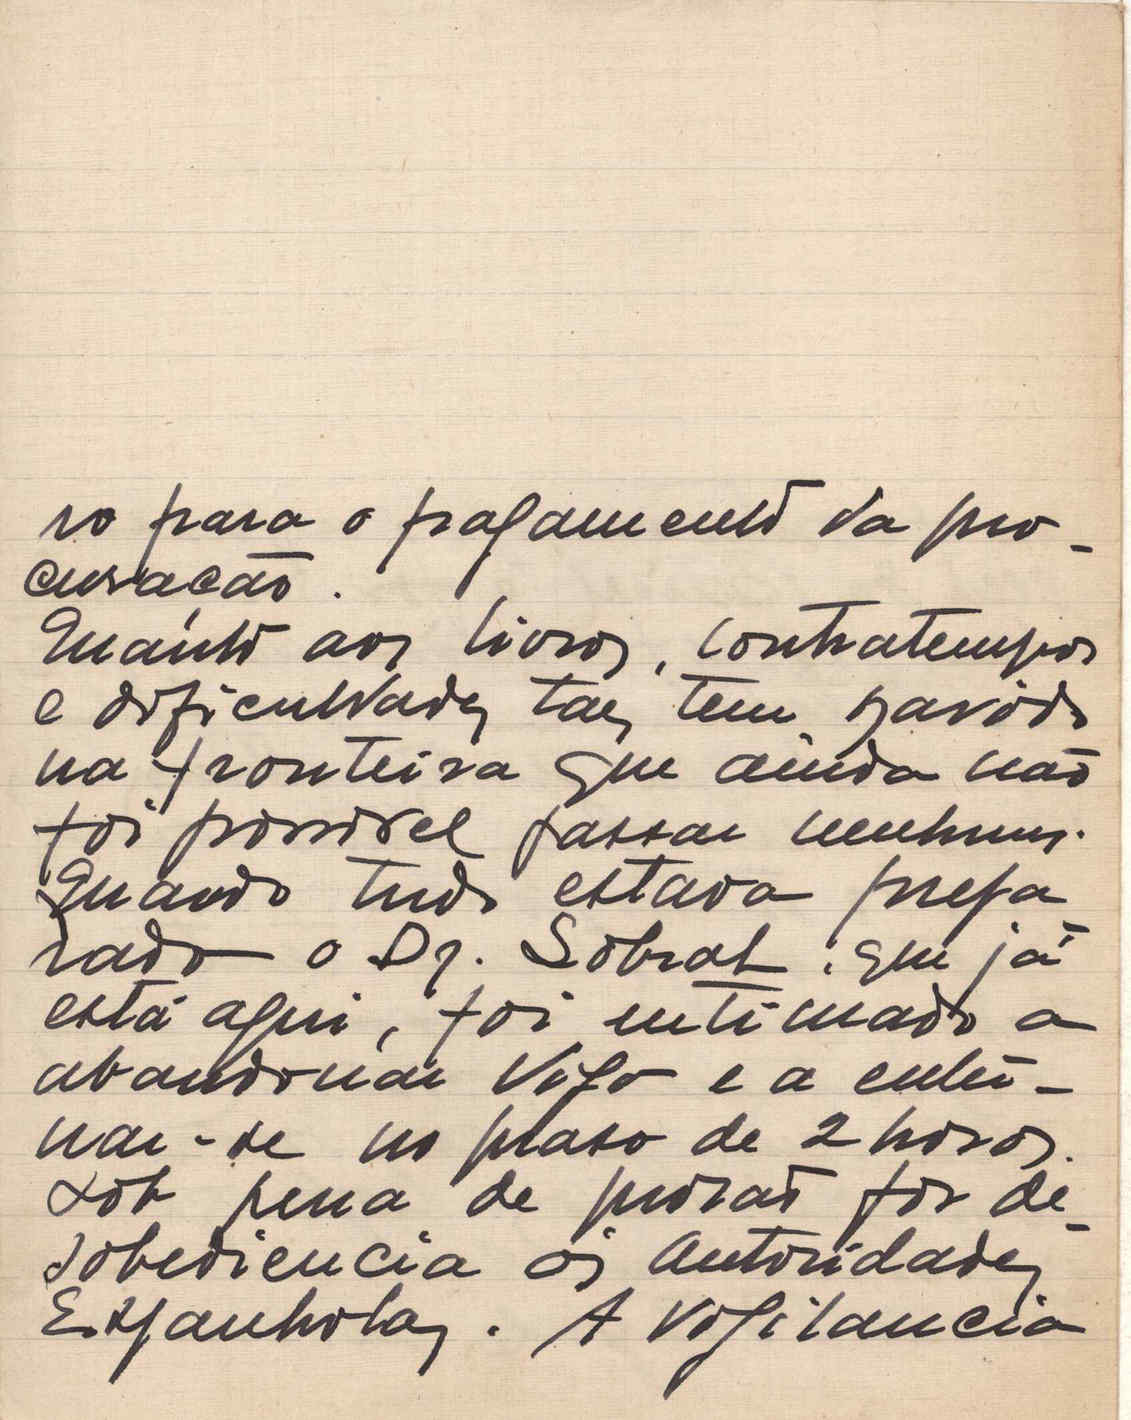 ro para o pagamento da pro-
curacão.
Quanto aos livros, contratempos
e dificuldades taes tem havido
na fronteira que ainda não
foi possivel passar nenhum.
Quando tudo estava prepa-
rado o Dr. Sobral, que já
está aqui, foi intimado a
abandonar Vigo e a inter-
nar-se no praso de 2 horas.
sob pena de prisão por de-
sobediencia ás Autoridades
Espanholas. A Vigilancia